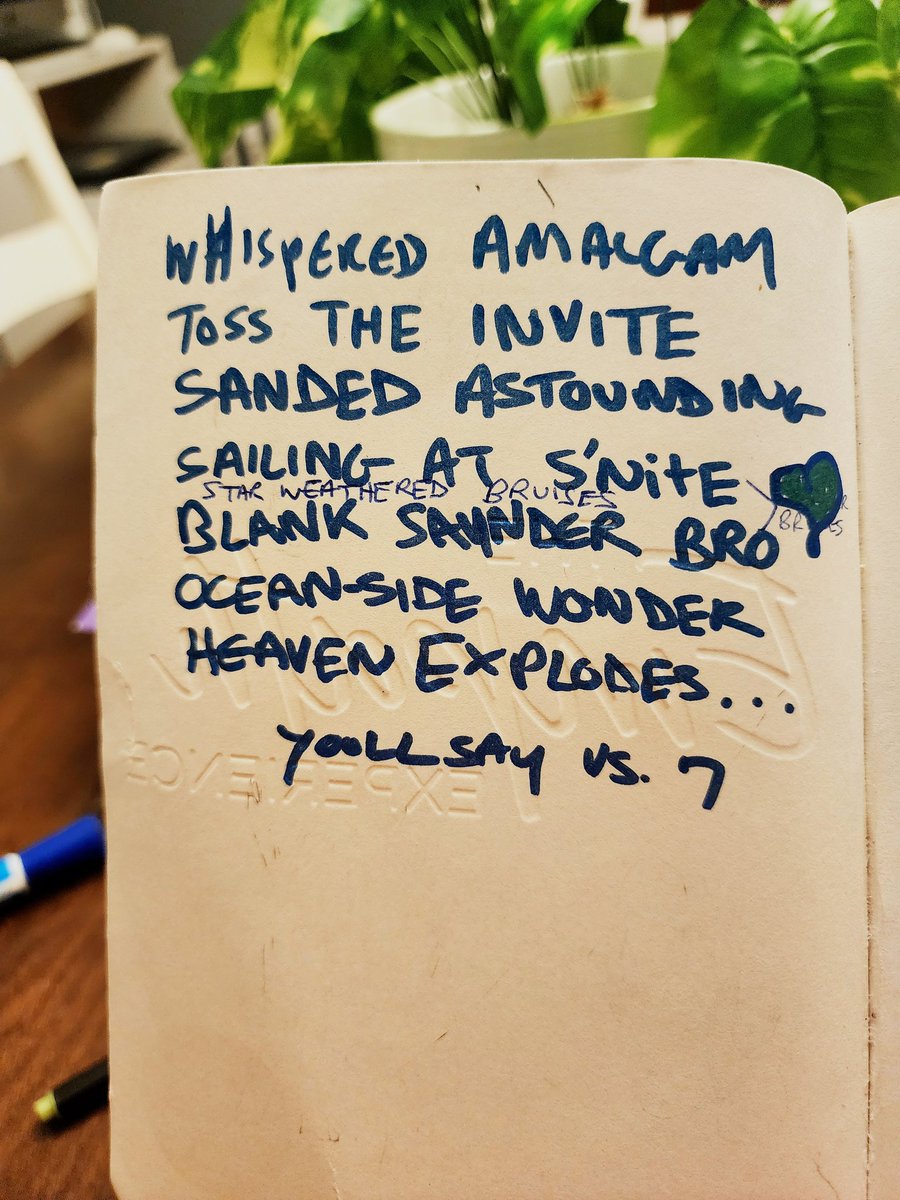 WHISPERED AMALGAM
TOSS THE INVITE
SANDED ASTOUNDING
SAILING AT S'NITE
STAR WEATHERED BRUISES
BLANK SAYNDER BRO
OCEAN-SIDE WONDER
HEAVEN EXPLODES...
YOOLL SAY VS. 7
EXPERIENCE